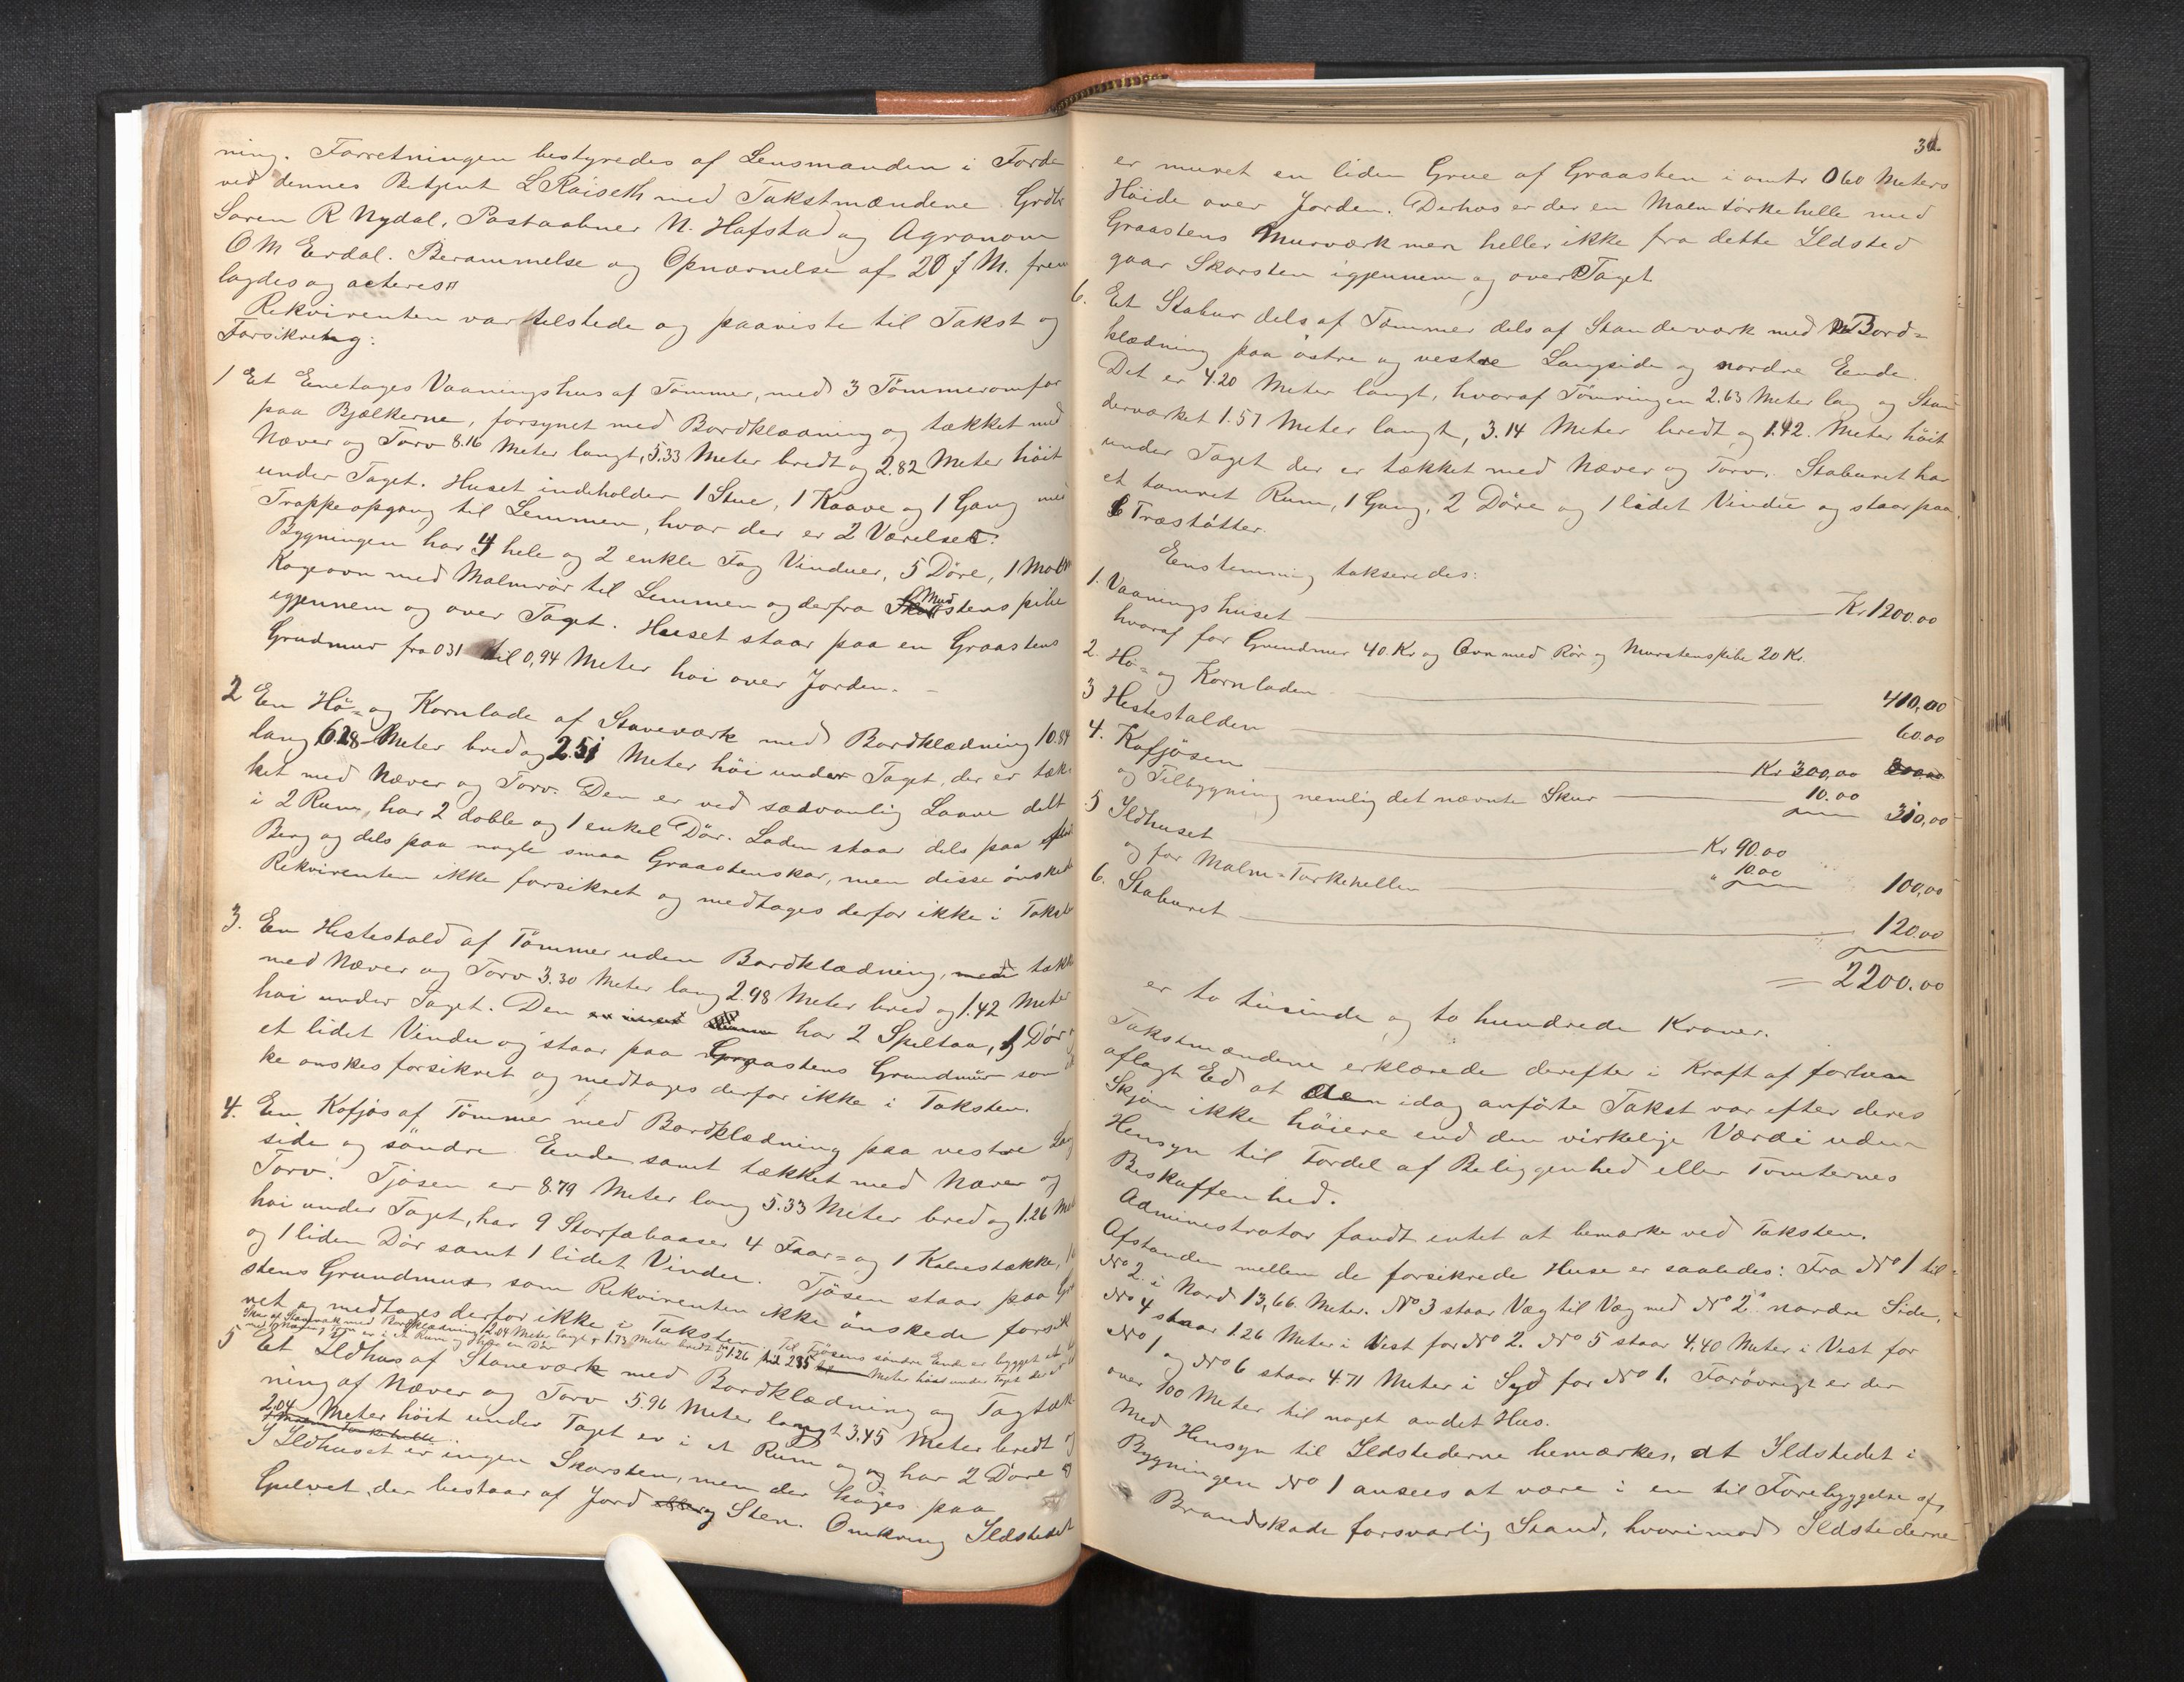 ning. Forretningen bestyredes af Lensmanden i Förde
ved dennes Betjent L Raiseth med Takstmændene Grdbr
Søren R Nydal, Postaabner N. Hafstad og Agronom
O M Erdal. Berammelse og Opnævnelse af 20 f M. frem
lagdes og acteres
Rekvirenten var tilstede og paaviste til Takst og
Forsikring:
1 Et Enetages Vaaningshus af Tömmer, med 3 Tömmeromfar
paa Bjælkerne, forsynet med Bordklædning og tækket med
Næver og Torv 8.16 Meter langt, 5.33 Meter bredt og 2.82 Meter höit
under Taget. Huset indeholder 1 Stue, 1 Kaave og 1 Gang med
Trappeopgang til Lemmen, hvor der er 2 Værelser.
Bygningen har 4 hele og 2 enkle Fag Vinduer, 5 Döre, 1 Malm
Kogeovn med Malmrör til Lemmen og derfra Murstens pibe
igjennem og over Taget. Huset staar paa en Graastens
Grudmur fra 031 til 0,94 Meter höi over Jorden. –
2 En Hö- og Kornlade af Stavværk med Bordklædning 10.84
lang 6.28 Meter bred og 2.51 Meter höi under Taget, der er tæk-
ket med Næver og Torv. Den er ved sædvanlig Laave delt
i 2 Rum, har 2 doble og 1 enkel Dör. Laden staar dels paa
Berg og dels paa nogle smaa Graastenskar, men disse önskes
Rekvirenten ikke forsikret og medtages derfor ikke i Takst
3. En Hestestald af Tömmer uden Bordklædning, med tækk
med Næver og Torv 3.30 Meter lang 2.98 Meter bred og 1.42 Meter
höi under Taget. Den har 2 Spiltau, 1 Dör
et lidet Vindu og staar paa Graastens Grundmür som
ke önskes forsikret og medtages derfor ikke i Taksten.
4. En Kofjös af Tömmer med Bordklædning paa vestre Lang
side og söndre Ende samt tækket med Næver og
Torv. Fjösen er 8.79 Meter lang 5.33 Meter bred og 1.26 Met
höi under Taget, har 9 Storfæbaaser 4 Faar= og 1 Kalvestække,
og 1 liden Dör samt 1 lidet Vindu. Fjösen staar paa Graa
stens Grundmur som Rekvirenten ikke önskede forsik
ret og medtages derfor ikke i Taksten. Til Fjösens söndre Ende er bygget et
Skur af Stavværk med Bordklædning 2,04 Meter langt 1.73 Meter bredt og 1.26 til 235 Meter höit under Taget der er
med Næver og Torv er i et Rum og har en Dör
5 Et Ildhus af Stavværk med Bordklædning og Tagtæk
ning af Næver og Torv 5.96 Meter langt 3.45 Meter bredt og
2,04 Meter höit under Taget er i et Rum og og har 2 Döre
I Ildhuset er ingen Skorsten, men der koges paa
Gulvet, der bestaar af Jord og Sten. Omkring Ildstedet
31.
er muret en liden Grue af Graasten i omtr 060 Meters
Höide over Jorden. Derhos er der en Malm törkehelle med
Graastens Murværk men heller ikke fra dette Ildsted
gaar Skorsten igjennem og over Taget
6. Et Stabur dels af Tömmer dels af Standerværk med Bord=
klædning paa östre og vestre Langside og nordre Ende.
Det er 4.20 Meter langt, hvoraf Tömringen 2.63 Meter lag og Stan
derværket 1.57 Meter langt, 3.14 Meter bredt og 1.42. Meter höit
under Taget der er tækket med Næver og Torv. Staburet har
et tömret Rum, 1 Gang, 2 Döre og 1 lidet Vindu og staar paa
6 Træstötter.
Enstemmig takseredes:
1. Vaaningshuset Kr 1200.00
hvoraf for Grundmur 40. Kr og Ovn med Rör og Murstenspibe 20 Kr.
2. Hö- og Kornladen 410,00
3 Hestestalden 60.00
4. Kofjösen Kr 300,00 300,00
og Tilbygning nemlig det nævnte Skur 10.00 310,00
5 Ildhuset Kr 90.00
og for Malm-Törkehellen " 10.00 100,00
6. Staburet 120.00
= 2200.00
er to tusinde og to hundrede Kroner.
Takstmændene erklærede derefter i Kraft af forhen
aflagt Ed at den idag anförte Takst var efter deres
Skjön ikke höiere end den virkelige Værdi uden
Hensyn til Fordel af Beliggenhed eller Tomternes
Beskaffenhed.
Administrator fandt intet at bemærke ved Taksten.
Afstanden mellem de forsikrede Huse er saaledes: Fra No 1 til
No 2. i Nord 13,66 Meter. No 3 staar Væg til Væg med No 2s nordre Side,
No 4 staar 1.26 Meter i Vest for No 2. No 5 staar 4,40 Meter i Vest for
No 1 og No 6 staar 4.71 Meter i Syd for No 1. Forövrigt er der
over 100 Meter til noget andet Hus.
Med Hensyn til Ildstederne bemærkes, at Ildstedet i
Bygningen No 1 ansees at være i en til Forebyggelse af
Brandskade forsvarlig Stand, hvorimod Ildstederne